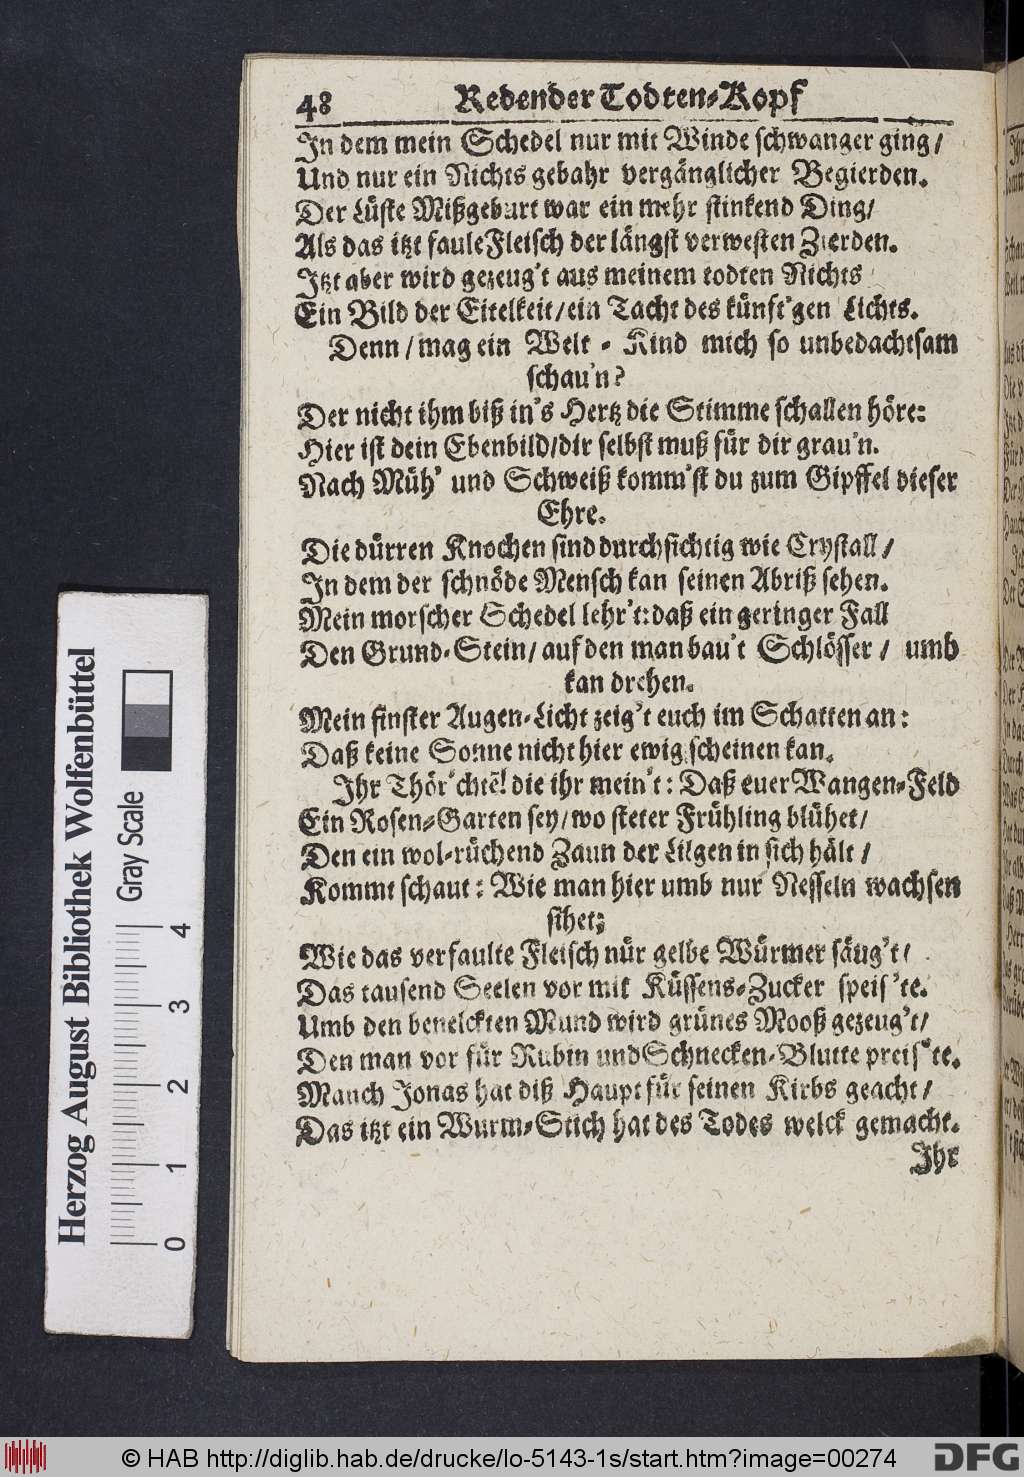 48 Redender Todten-Kopf
In dem mein Schedel nur mit Winde schwanger ging/
Und nur ein Nichts gebahr vergänglicher Begierden.
Der Lüste Mißgeburt war ein mehr stinkend Ding/
Als das itzt faule Fleisch der längst verwesten Zierden.
Itzt aber wird gezeug't aus meinem todten Nichts
Ein Bild der Eitelkeit/ ein Tacht des künft'gen Lichts.
Denn/ mag ein Welt-Kind mich so unbedachtsam
schau'n?
Der nicht ihm biß in's Hertz die Stimme schallen höre:
Hier ist dein Ebenbild/ dir selbst muß für dir grau'n.
Nach Müh' und Schweiß komm'st du zum Gipffel dieser
Ehre.
Die dürren Knochen sind durchsichtig wie Crystall/
In dem der schnöde Mensch kan seinen Abriß sehen.
Mein morscher Schedel lehr't: daß ein geringer Fall
Den Grund-Stein/ auf den man bau't Schlösser/ umb
kan drehen.
Mein finster Augen-Licht zeig't euch im Schatten an:
Daß keine Sonne nicht hier ewig scheinen kan.
Ihr Thör'chtẽ! die ihr mein't: Daß euer Wangen-Feld
Ein Rosen-Garten sey/ wo steter Frühling blühet/
Den ein wol-rüchend Zaun der Lilgen in sich hält/
Kommt schaut: Wie man hier umb nur Nesseln wachsen
sihet;
Wie das verfaulte Fleisch nür gelbe Würmer säug't/
Das tausend Seelen vor mit Küssens-Zucker speis'te.
Umb den benelckten Mund wird grünes Mooß gezeug't/
Den man vor für Rubin und Schnecken-Blutte preis'te.
Manch Jonas hat diß Haupt für seinen Kirbs geacht/
Das itzt ein Wurm-Stich hat des Todes welck gemacht.
Ihr
Herzog August Bibliothek Wolfenbüttel
Gray Scale
0 1 2 3 4
© HAB http://diglib.hab.de/drucke/lo-5143-1s/start.htm?image=00274
DFG